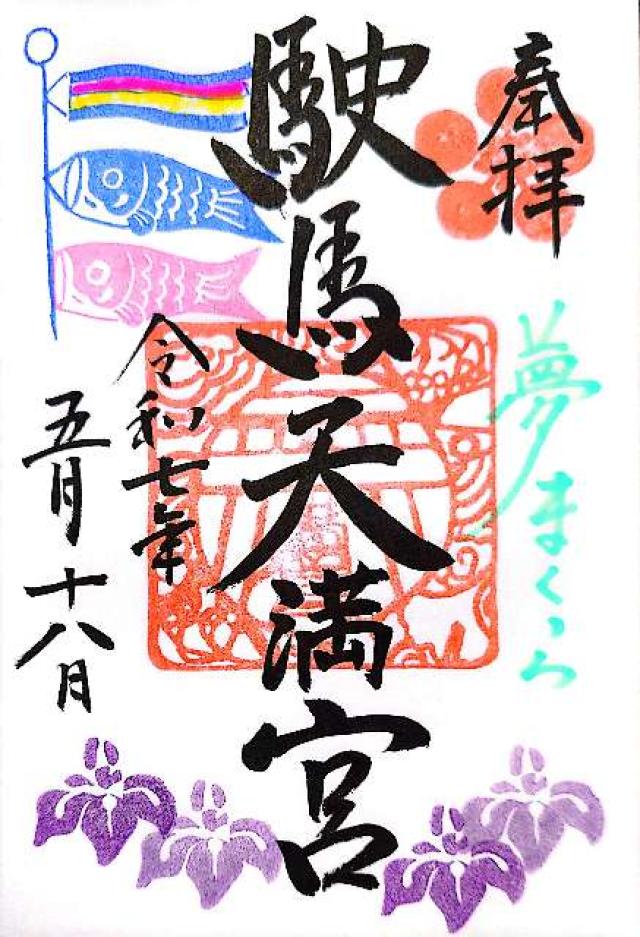 奉拝
夢まくら
駛馬天満宮
令和七年
五月十八日